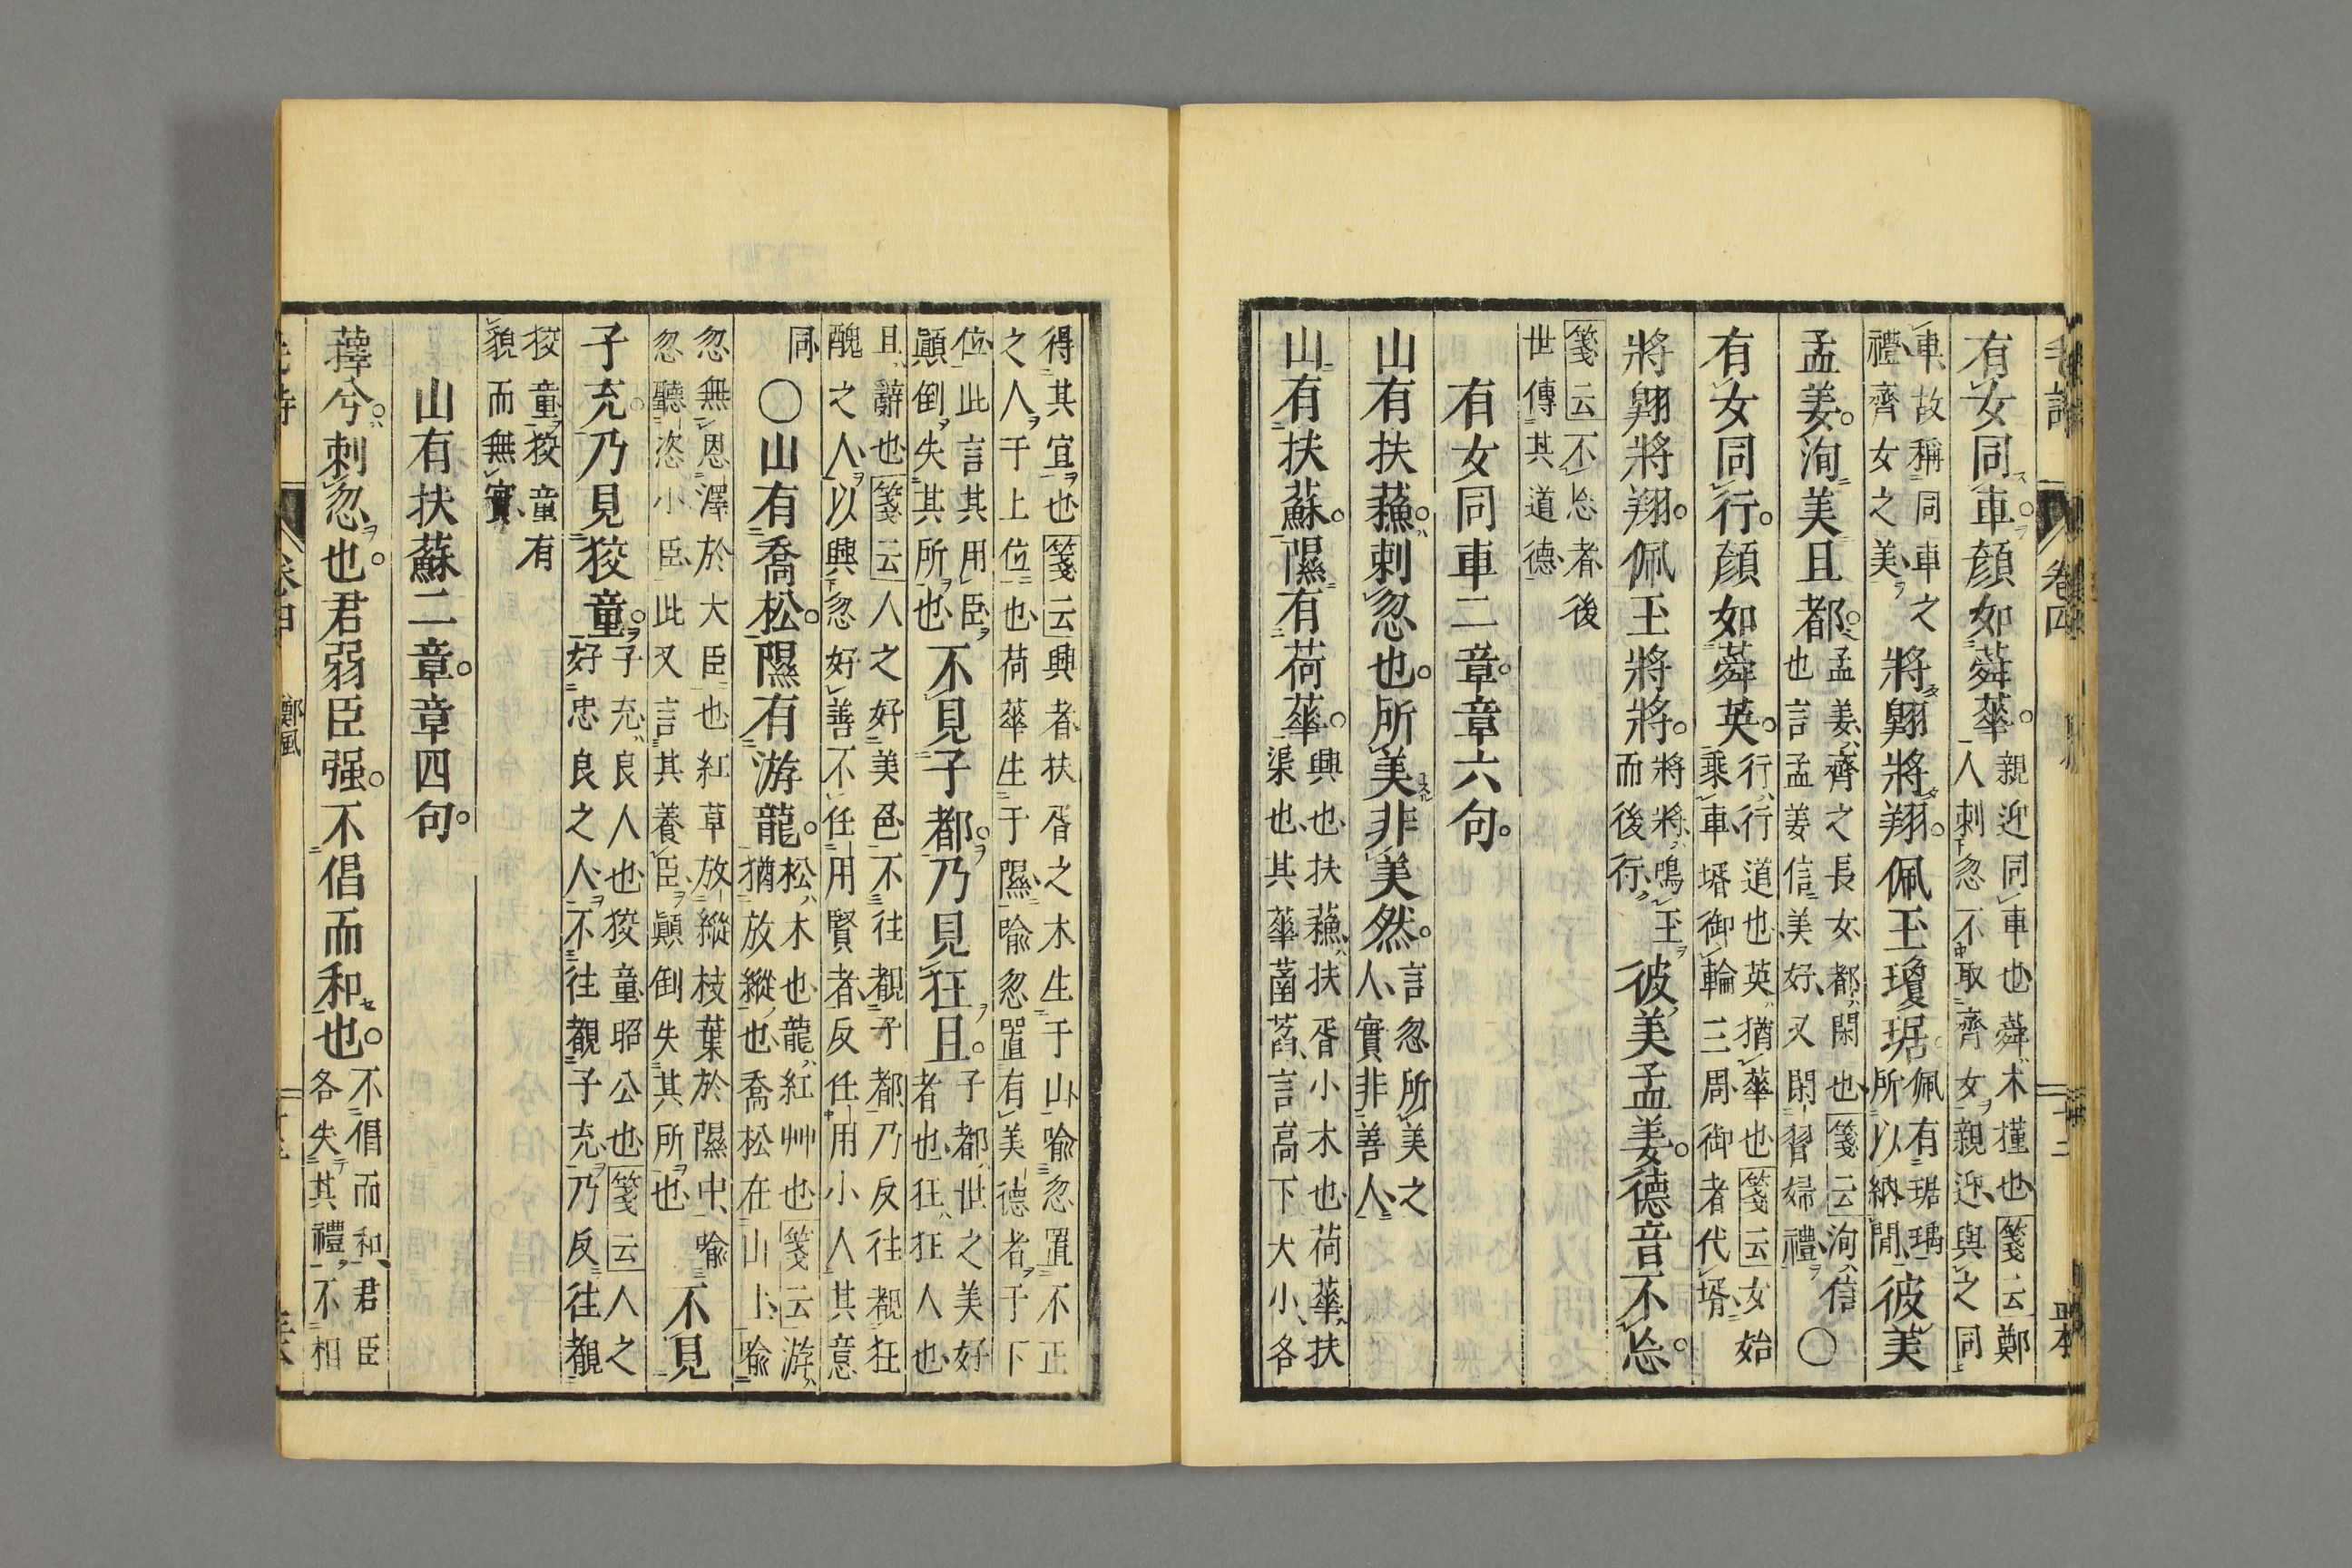 毛詩 卷四
有女同車顏如蕣華。親迎同車也蕣木槿也箋云鄭人刺忽不取齊女親迎與之同
車故稱同車之禮齊女之美將翺將翔。佩玉瓊琚。佩有琚瑀所以納閒彼美
孟姜。洵美且都。孟姜齊之長女都閑也箋云洵信也言孟姜信美好又閑習婦禮○
有女同行。顏如蕣英。行行道也英猶華也箋云女始乘車壻御輪三周御者代壻
將翺將翔。佩玉將將。將將鳴玉而後行彼美孟姜。德音不忘。
箋云不忘者後世傳其道德
有女同車二章。章六句。
山有扶蘓。刺忽也。所美非美然。言忽所美之人實非善人
山有扶蘇。隰有荷華。興也扶蘓扶胥小木也荷華扶渠也其華菡萏言高下大小各
得其宜也箋云興者扶胥之木生于山喻忽置不正之人于上位也荷華生于隰喻忽置有美德者于下
位此言其用臣顚倒失其所也不見子都。乃見狂且。子都世之美好者也狂狂人也
且辭也箋云人之好美色不往覩子都乃反往覩狂醜之人以興忽好善不任用賢者反任用小人其意
同○山有喬松。隰有游龍。松木也龍紅艸也箋云游猶放縱也喬松在山上喻
忽無恩澤於大臣也紅草放縱枝葉於隰中喻忽聽恣小臣此又言其養臣顚倒失其所也不見
子充。乃見狡童。子充良人也狡童昭公也箋云人之好忠良之人不往覩子充乃反往覩
狡童狡童有貌而無實
山有扶蘇二章。章四句。
蘀兮。刺忽也。君弱臣强。不倡而和也。不倡而和君臣各失其禮不相
鄭風